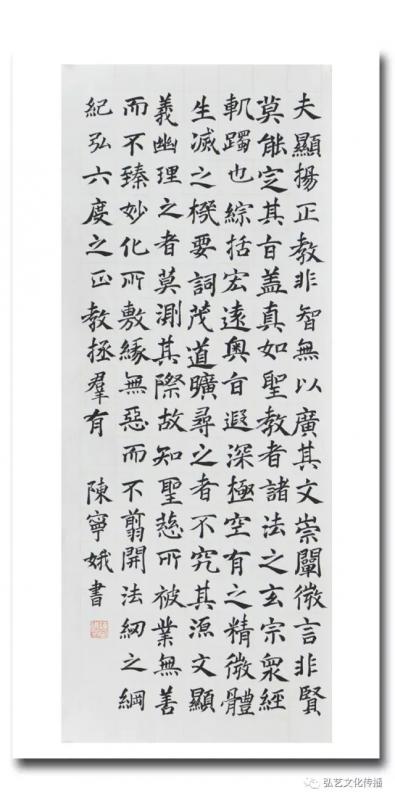 夫顯揚正教非智無以廣其文崇闡微言非賢
莫能定其旨盖真如聖教者諸法之玄宗衆經
軌躅也綜括宏遠奧旨遐深極空有之精微體
生滅之機要詞茂道曠尋之者不究其源文顯
義幽理之者莫測其際故知聖慈所被業無善
而不臻妙化所敷緣無惡而不翦開法網之綱
紀弘六度之正教拯羣有 陳寧娥書
弘艺文化传播